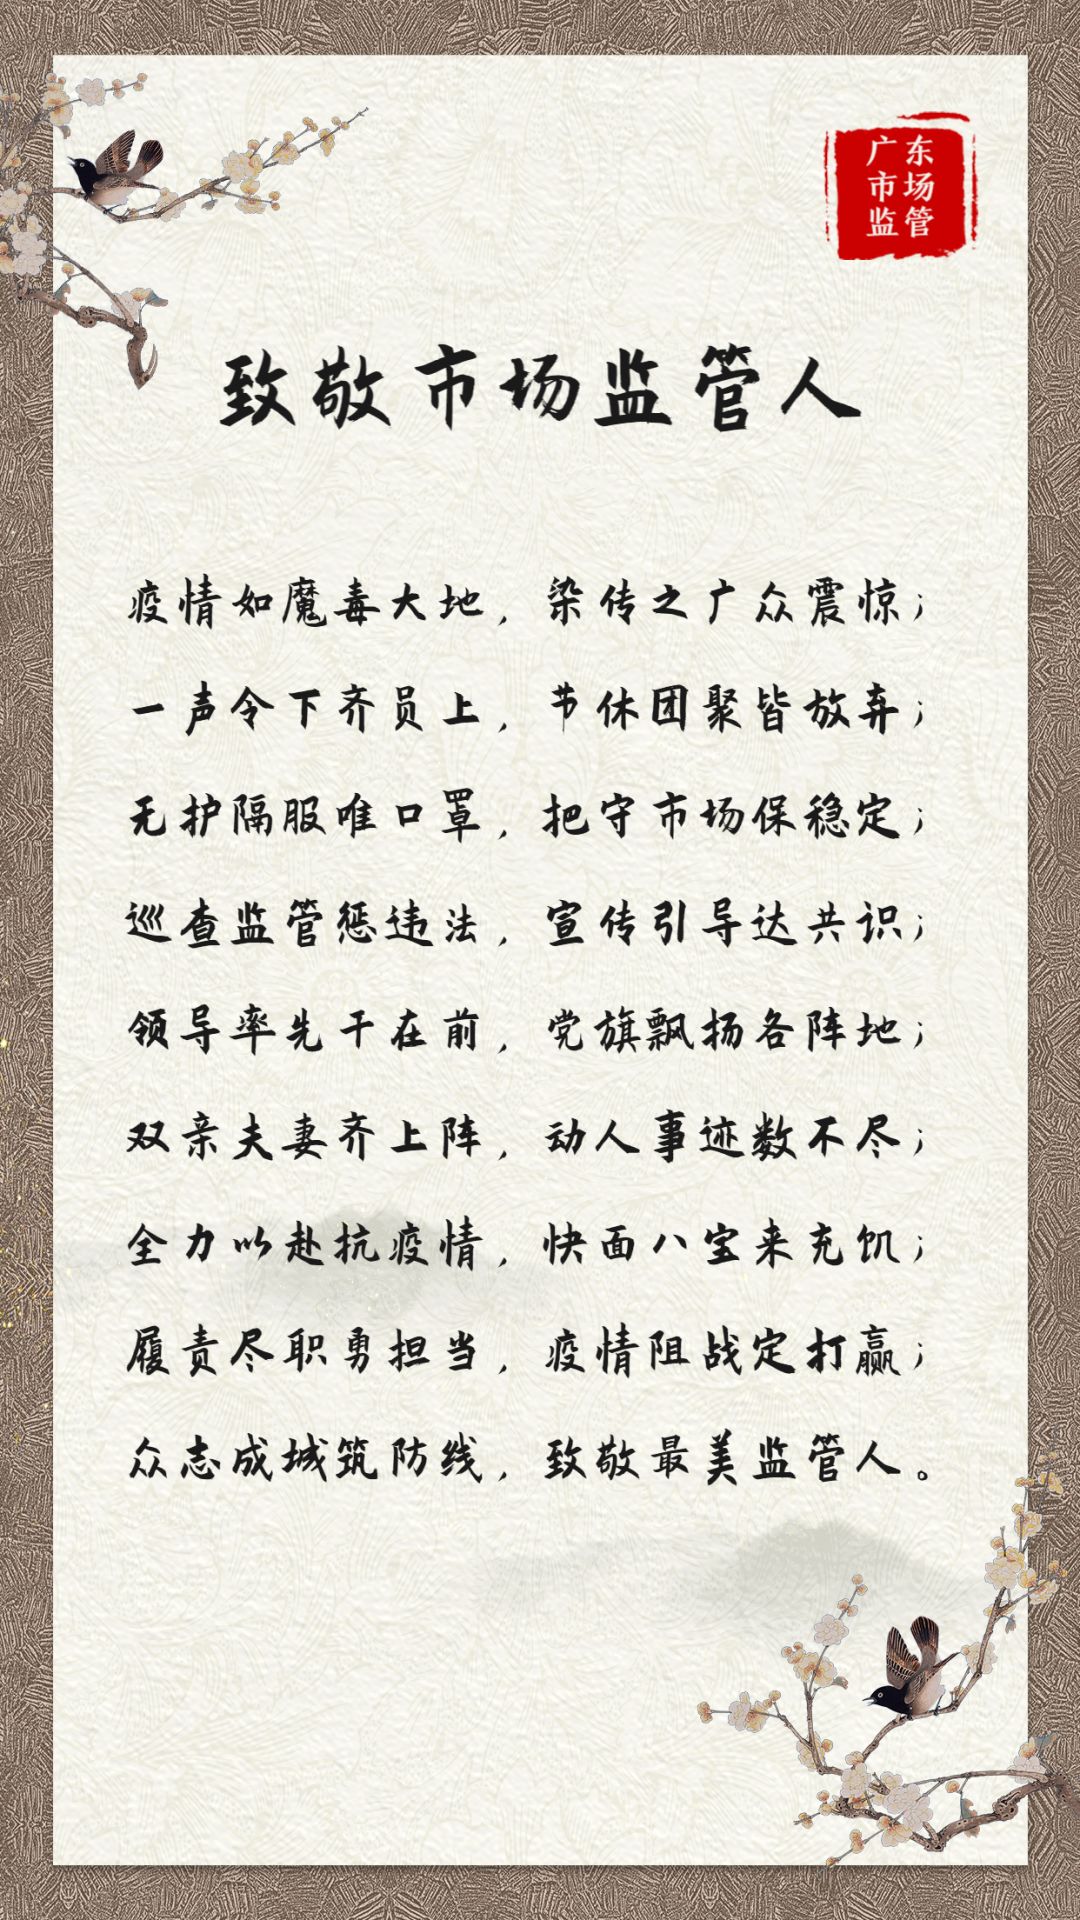 广东
市场
监管
致敬市场监管人
疫情如魔毒大地，染传之广众震惊；
一声令下齐员上，节休团聚皆放弃；
无护隔服唯口罩，把守市场保稳定；
巡查监管惩违法，宣传引导达共识；
领导率先干在前，党旗飘扬各阵地；
双亲夫妻齐上阵，动人事迹数不尽；
全力以赴抗疫情，快面八宝来充饥；
履责尽职勇担当，疫情阻战定打赢；
众志成城筑防线，致敬最美监管人。